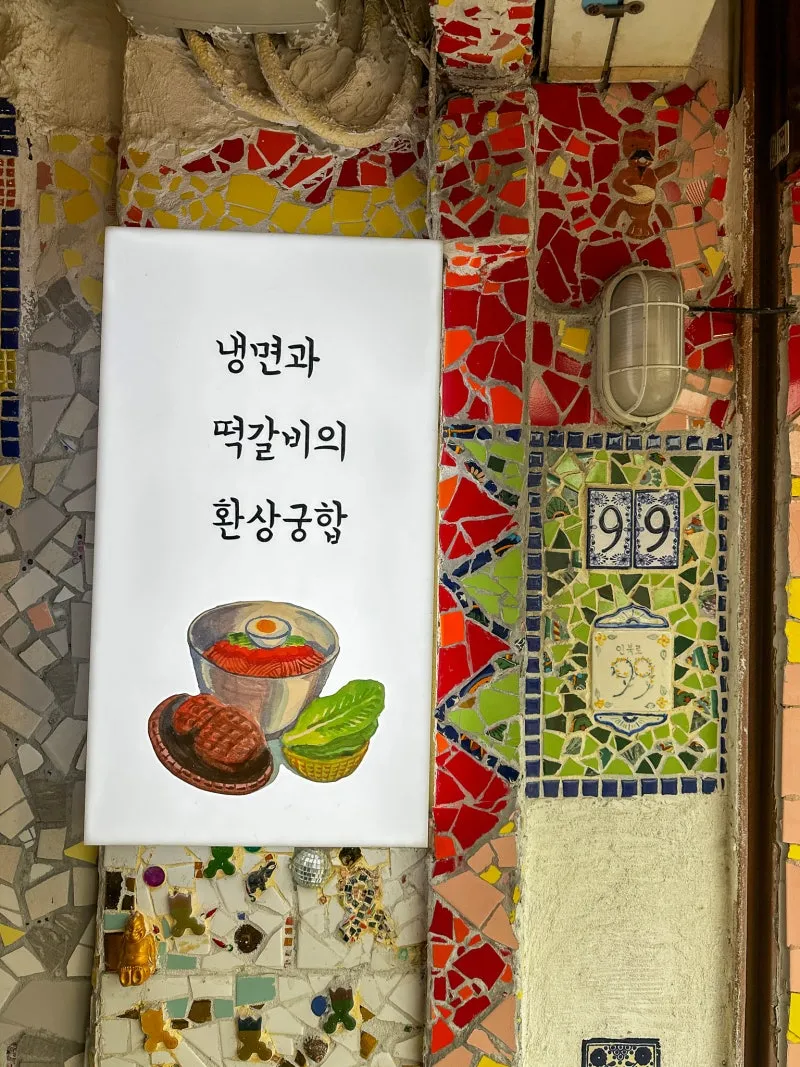 냉면과
떡갈비의
환상궁합
99
인북로
99